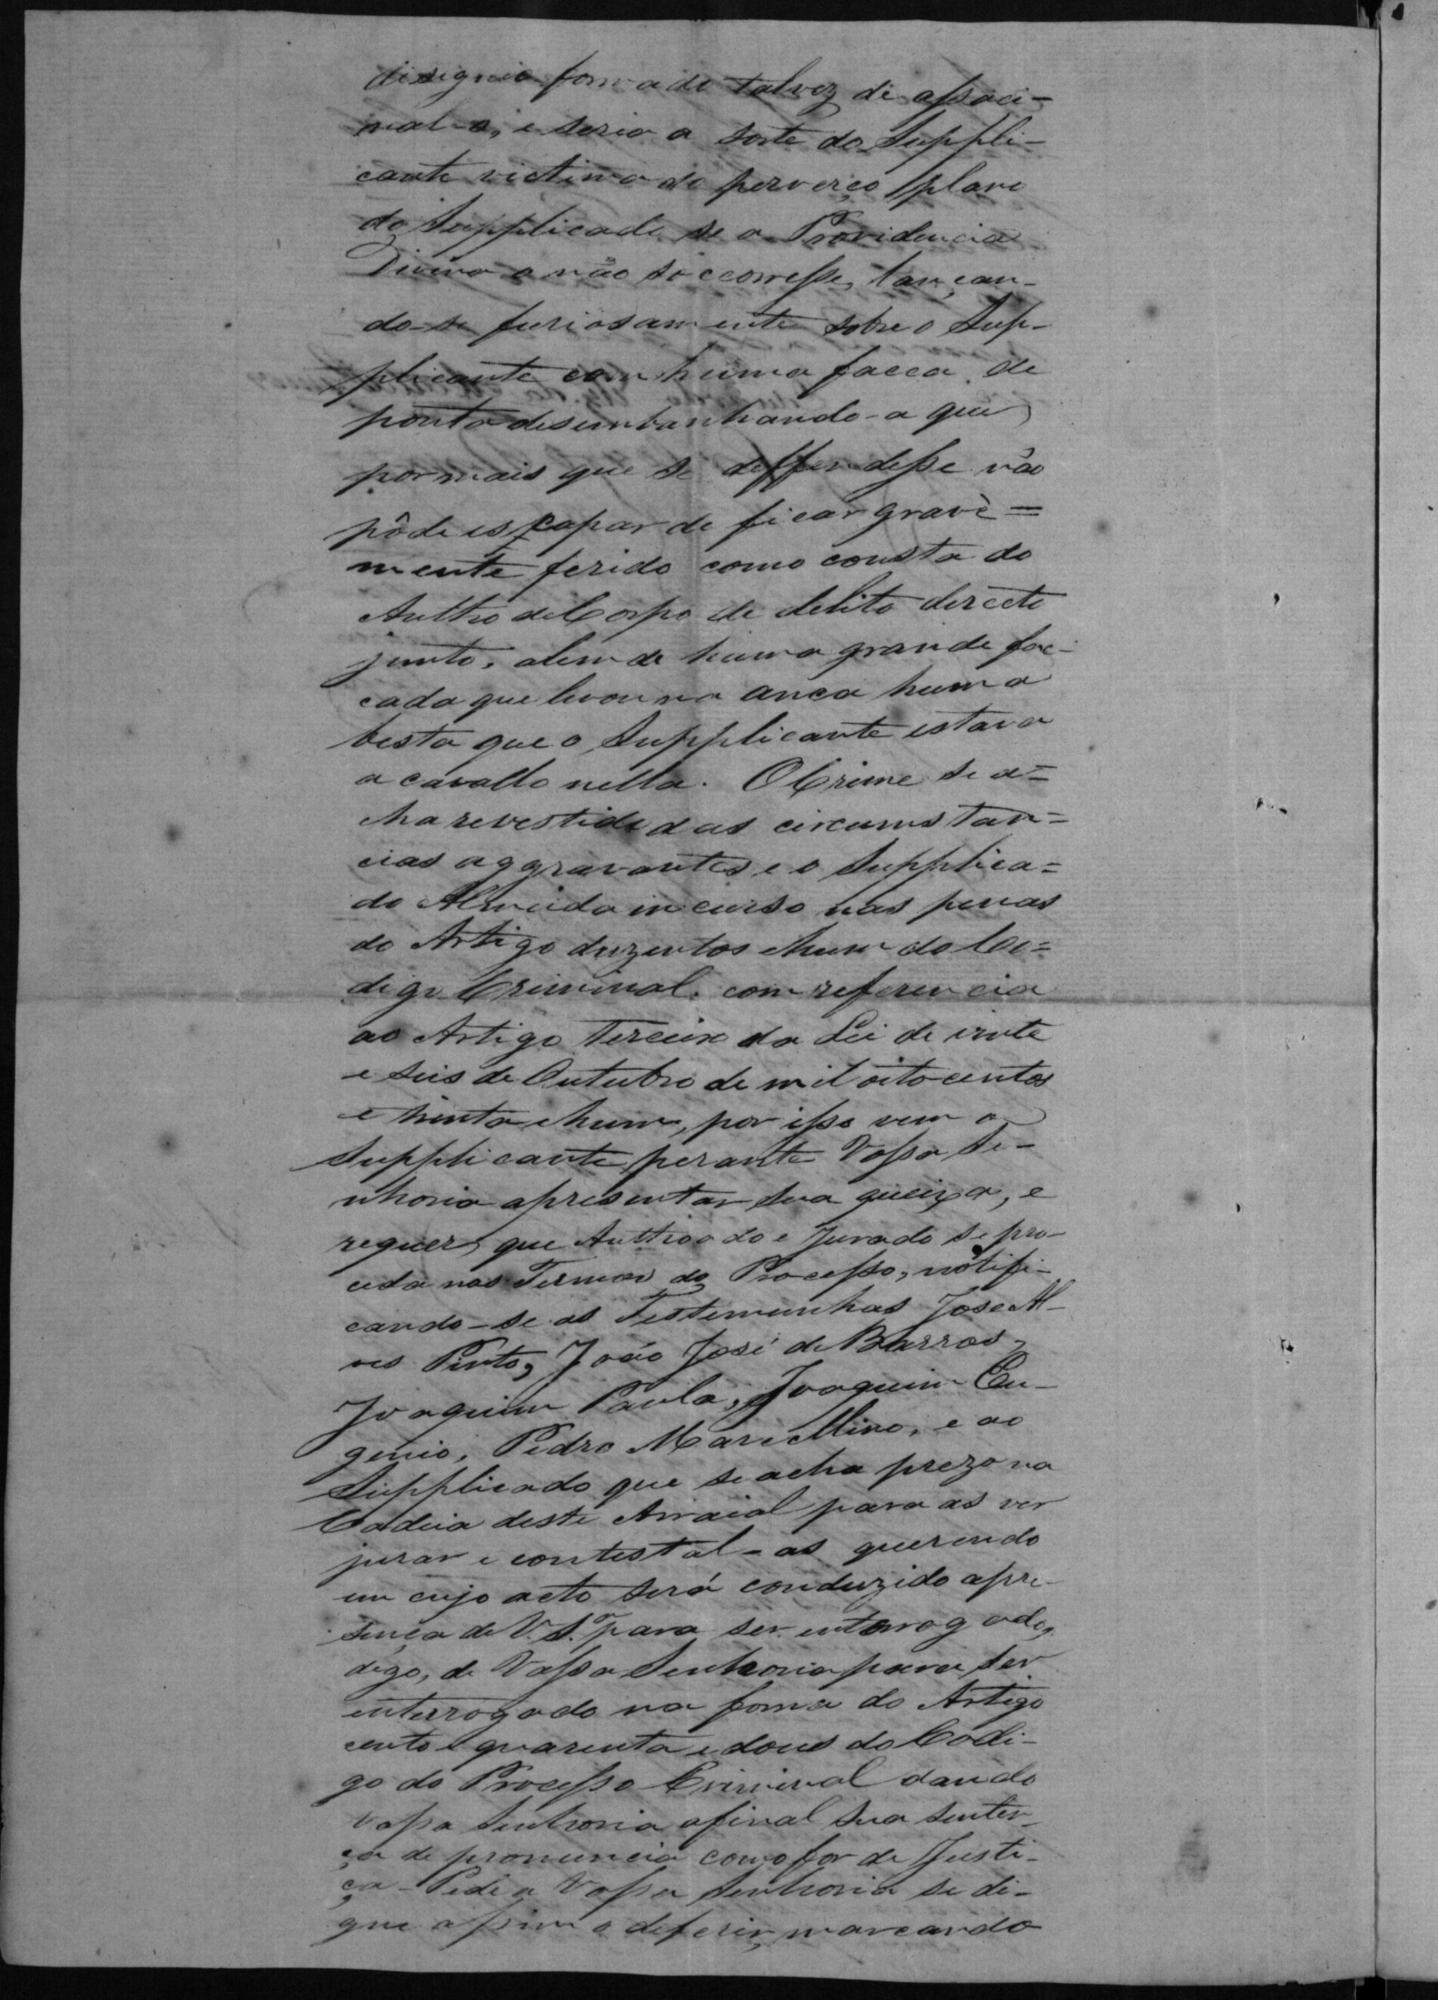 disignio formado talvez de assaci-
nal-o, e seria a sorte do Suppli-
cante victima do perverço plano
do Supplicado se a Providencia
Divina o não soccorresse, lançan-
do-se furiosamente sobre o Sup-
plicante com huma facca de
ponta desembanhando-a que
por mais que se deffendesse não
pôde escapar de ficar gravè=
mente ferido como consta do
Autho de Corpo de delito dirècto
junto, alem de huma grande fac-
cada que levou na anca huma
besta que o Supplicante estava
a cavallo nella. O Crime se a=
cha revestido das circumstan=
cias aggravantes e o Supplica=
do Almeida incurso nas penas
do Artigo duzentos e hum do Co=
digo Criminal. com referencia
ao Artigo Terceiro da Lei de vinte
e seis de Outubro de mil oito centos
e trinta e hum, por isso vem o
Supplicante perante Vossa Se-
nhoria apresentar sua queixa, e
requer, que Authoado e Jurado se pro-
ceda nos Termos do Processo, nótifi-
cando-se as Testemunhas José Al-
ves Pinto, João José de Barros,
Joaquim Paula, Joaquim Eu-
genio, Pedro Marcellino, e ao
Supplicado que se acha prezo na
Cadeia deste Arraial para as ver
jurar e contestal-as querendo
em cujo acto será conduzido apre-
sença de V. S.ª para ser entorrogado,
digo, de Vossa Senhoria para ser
interrogado na forma do Artigo
cento e quarenta e dous do Codi-
go do Processo Criminal dando
Vossa Senhoria afinal sua senten-
ça de pronuncia como for de Justi-
ça - Pede a Vossa Senhoria se di-
gne assim o deferir, marcando